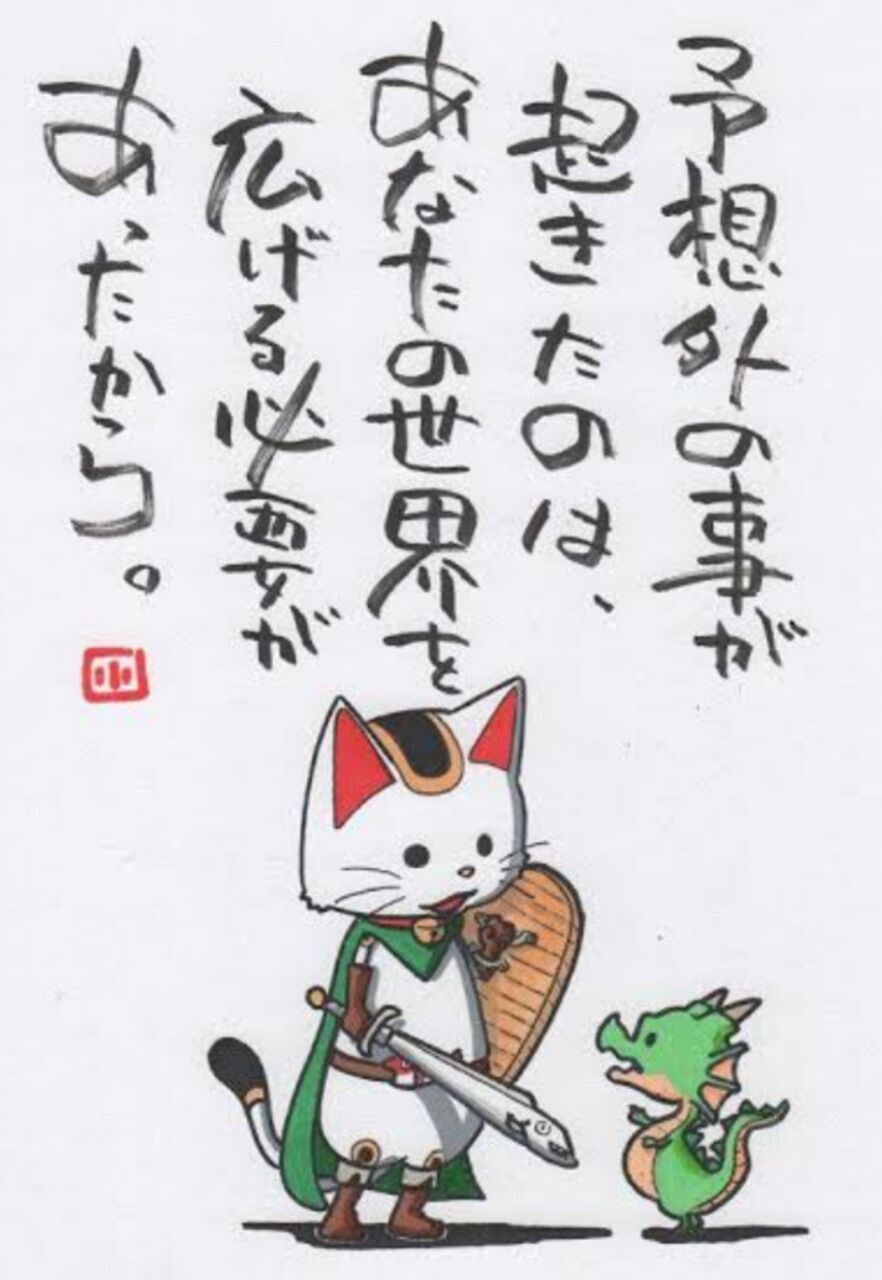 予想外の事が
起きたのは、
あなたの世界を
広げる必要が
あったから。
小